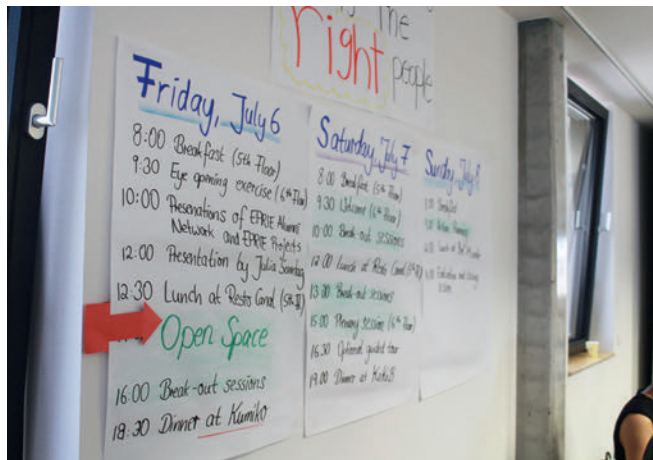 is the
right people
Friday, July 6
8:00 Breakfast (5th Floor)
9:30 Eye opening exercise (6th Floor)
10:00 Presenations of EPRIE Alumni
Network and EPRIE Projects
12:00 Presentation by Julia
12:30 Lunch at Resto Canal (5th Fl)
Open Space
16:00 Break-out sessions
18:30 Dinner at Kumiko
Saturday, July 7
8:00 Breakfast (5th Floor)
9:30 Welcome (6th Floor)
10:00 Break-out sessions
12:00 Lunch at Resto Canal (5th Fl)
13:30 Break-out sessions
15:00 Plenary session (6th Floor)
16:30 Optional guided tour
19:00 Dinner at
Sunday, July 8
Breakfast
Lunch at
Evaluation and closing
session